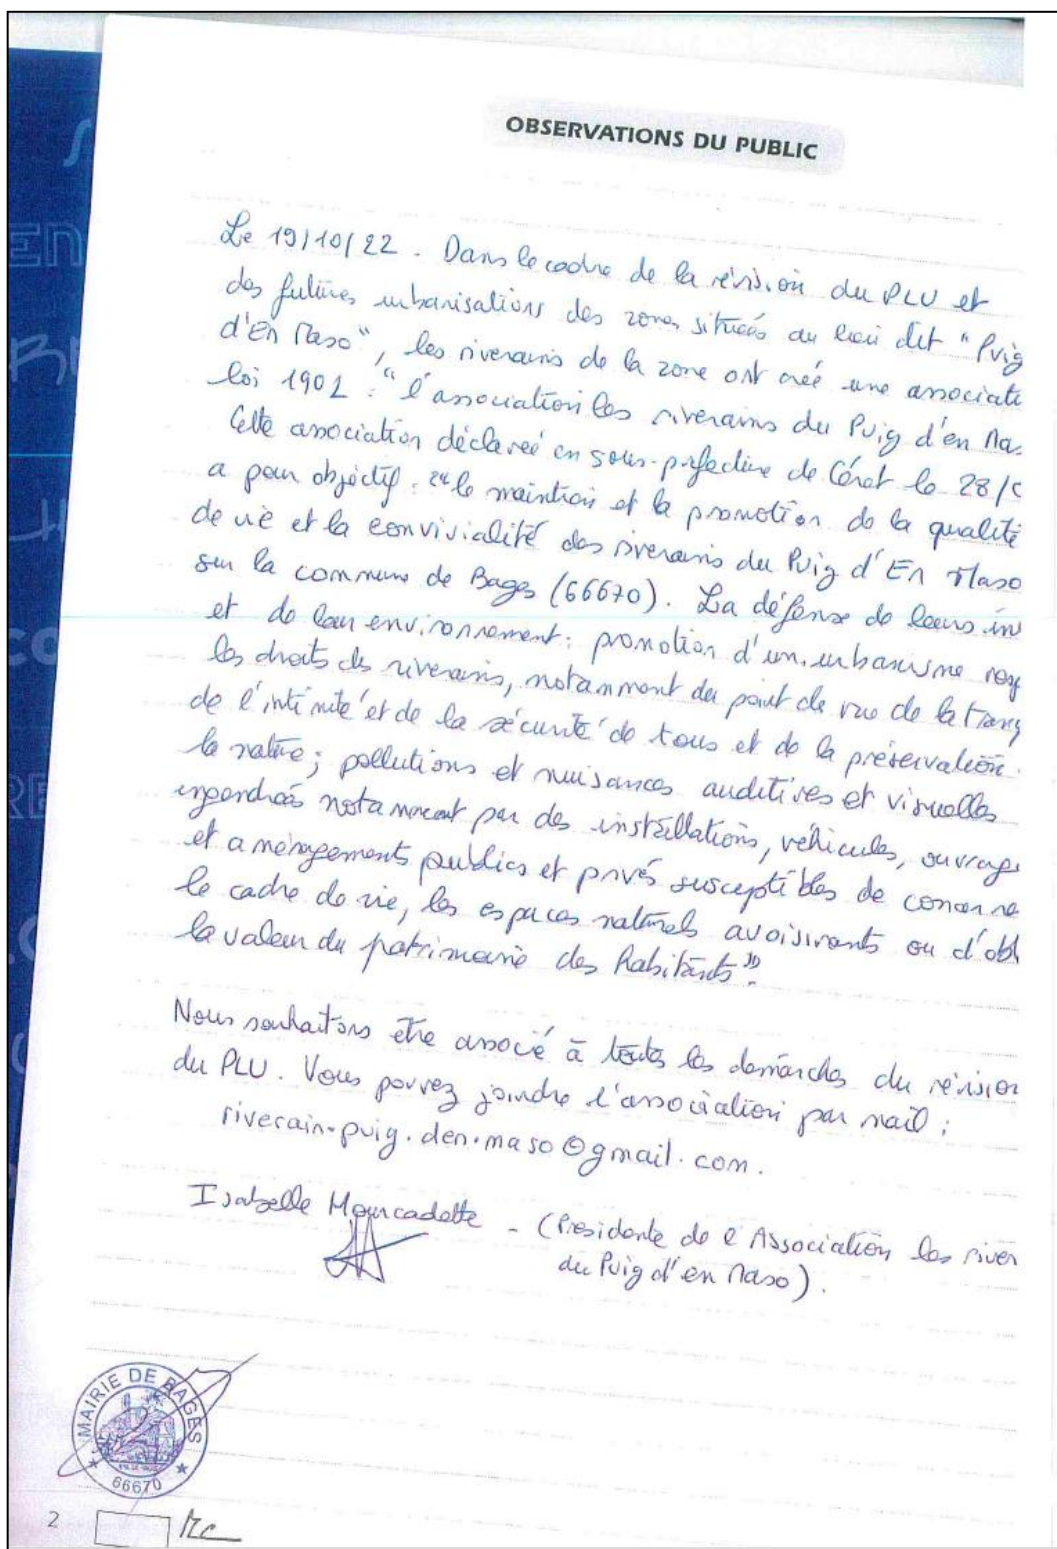 OBSERVATIONS DU PUBLIC
Le 19/10/22. Dans le cadre de la révision du PLU et
des futures urbanisations des zones situées au lieu dit "Puig
d'En Maso", les riverains de la zone ont créé une associati
loi 1901 : "l'association les riverains du Puig d'en Ma.
Cette association déclarée en sous-préfecture de Céret le 28/0
a pour objectif : "le maintien et la promotion de la qualité
de vie et la convivialité des riverains du Puig d'En Maso
sur la commune de Bages (66670). La défense de leurs in
et de leur environnement : promotion d'un urbanisme resp
les droits des riverains, notamment du point de vue de la tranq
de l'intimité et de la sécurité de tous et de la préservation
la nature ; pollutions et nuisances auditives et visuelles
engendrées notamment par des installations, véhicules, ouvrage
et aménagements publics et privés susceptibles de concerne
le cadre de vie, les espaces naturels avoisinants ou d'obl
la valeur du patrimoine des habitants".
Nous souhaitons être associé à toutes les démarches du révision
du PLU. Vous pouvez joindre l'association par mail :
riverain.puig.den.maso@gmail.com.
Isabelle Mourcadette - (Présidente de l'Association les river
du Puig d'en Maso).
MAIRIE DE BAGES
66670
2